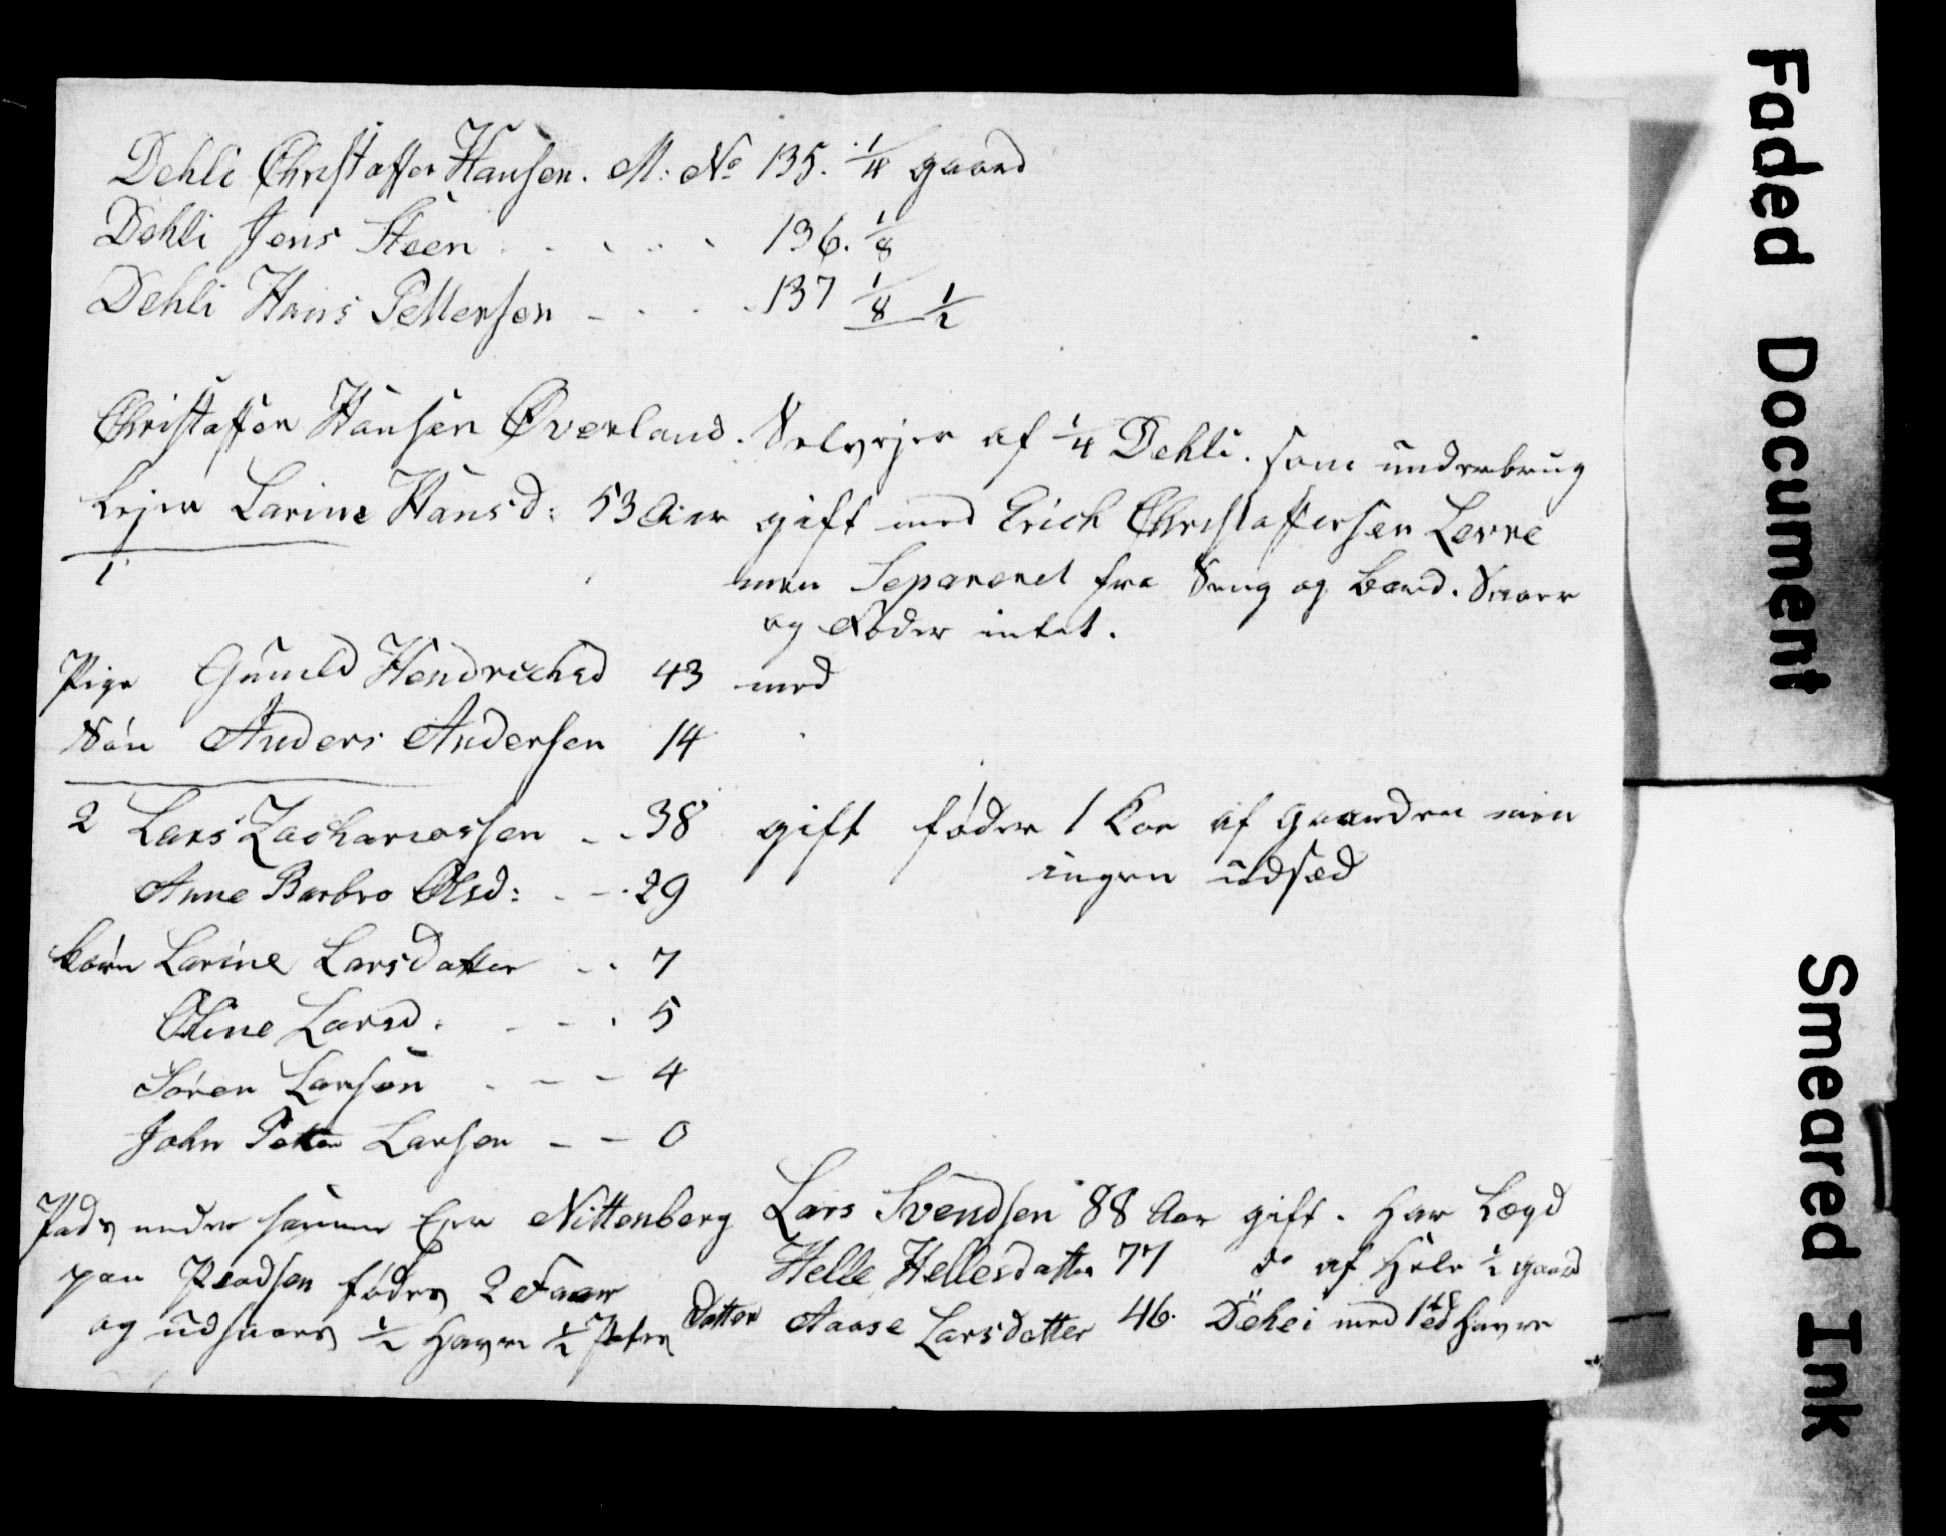 Dehli Christoffer Hansen. M: No 135. 1/4 gaard
Dehli Jens Steen . . . . . 136. 1/8
Dehli Hans Pettersen - . . . 137 1/8 1/2
Christoffer Hansen Øverland. Selvejer af 1/4 Dehli. som underbrug
Lejer Larine Hansd: 53 Aar gift med Erich Christoffersen Lerre
1
men Separeret fra Seng og Bord. Saaer
og føder intet.
Pige Gunild Hendrichsd 43 med
Søn Anders Andersen 14
2 Lars Zachariassen - - 38 gift føder 1 Koe af gaarden men
ingen udsæd
Anne Barbro Olsd: - - 29
børn Larine Larsdatter - . 7
Oline Larsd. - - . 5
Søren Larsen - - - 4
John Petter Larsen - - 0
Plads under samme Ejer Nittenberg Lars Svendsen 88 Aar gift. har Lægd
paa Pladsen fødes 2 Faar Helle Hellesdatter 77 do af hele 1/2 gaard
og udsaaes 1/2 Havre 1/2 datter Aaase Larsdatter 46. Dehli med 1 Havre
Faded Document
Smeared Ink